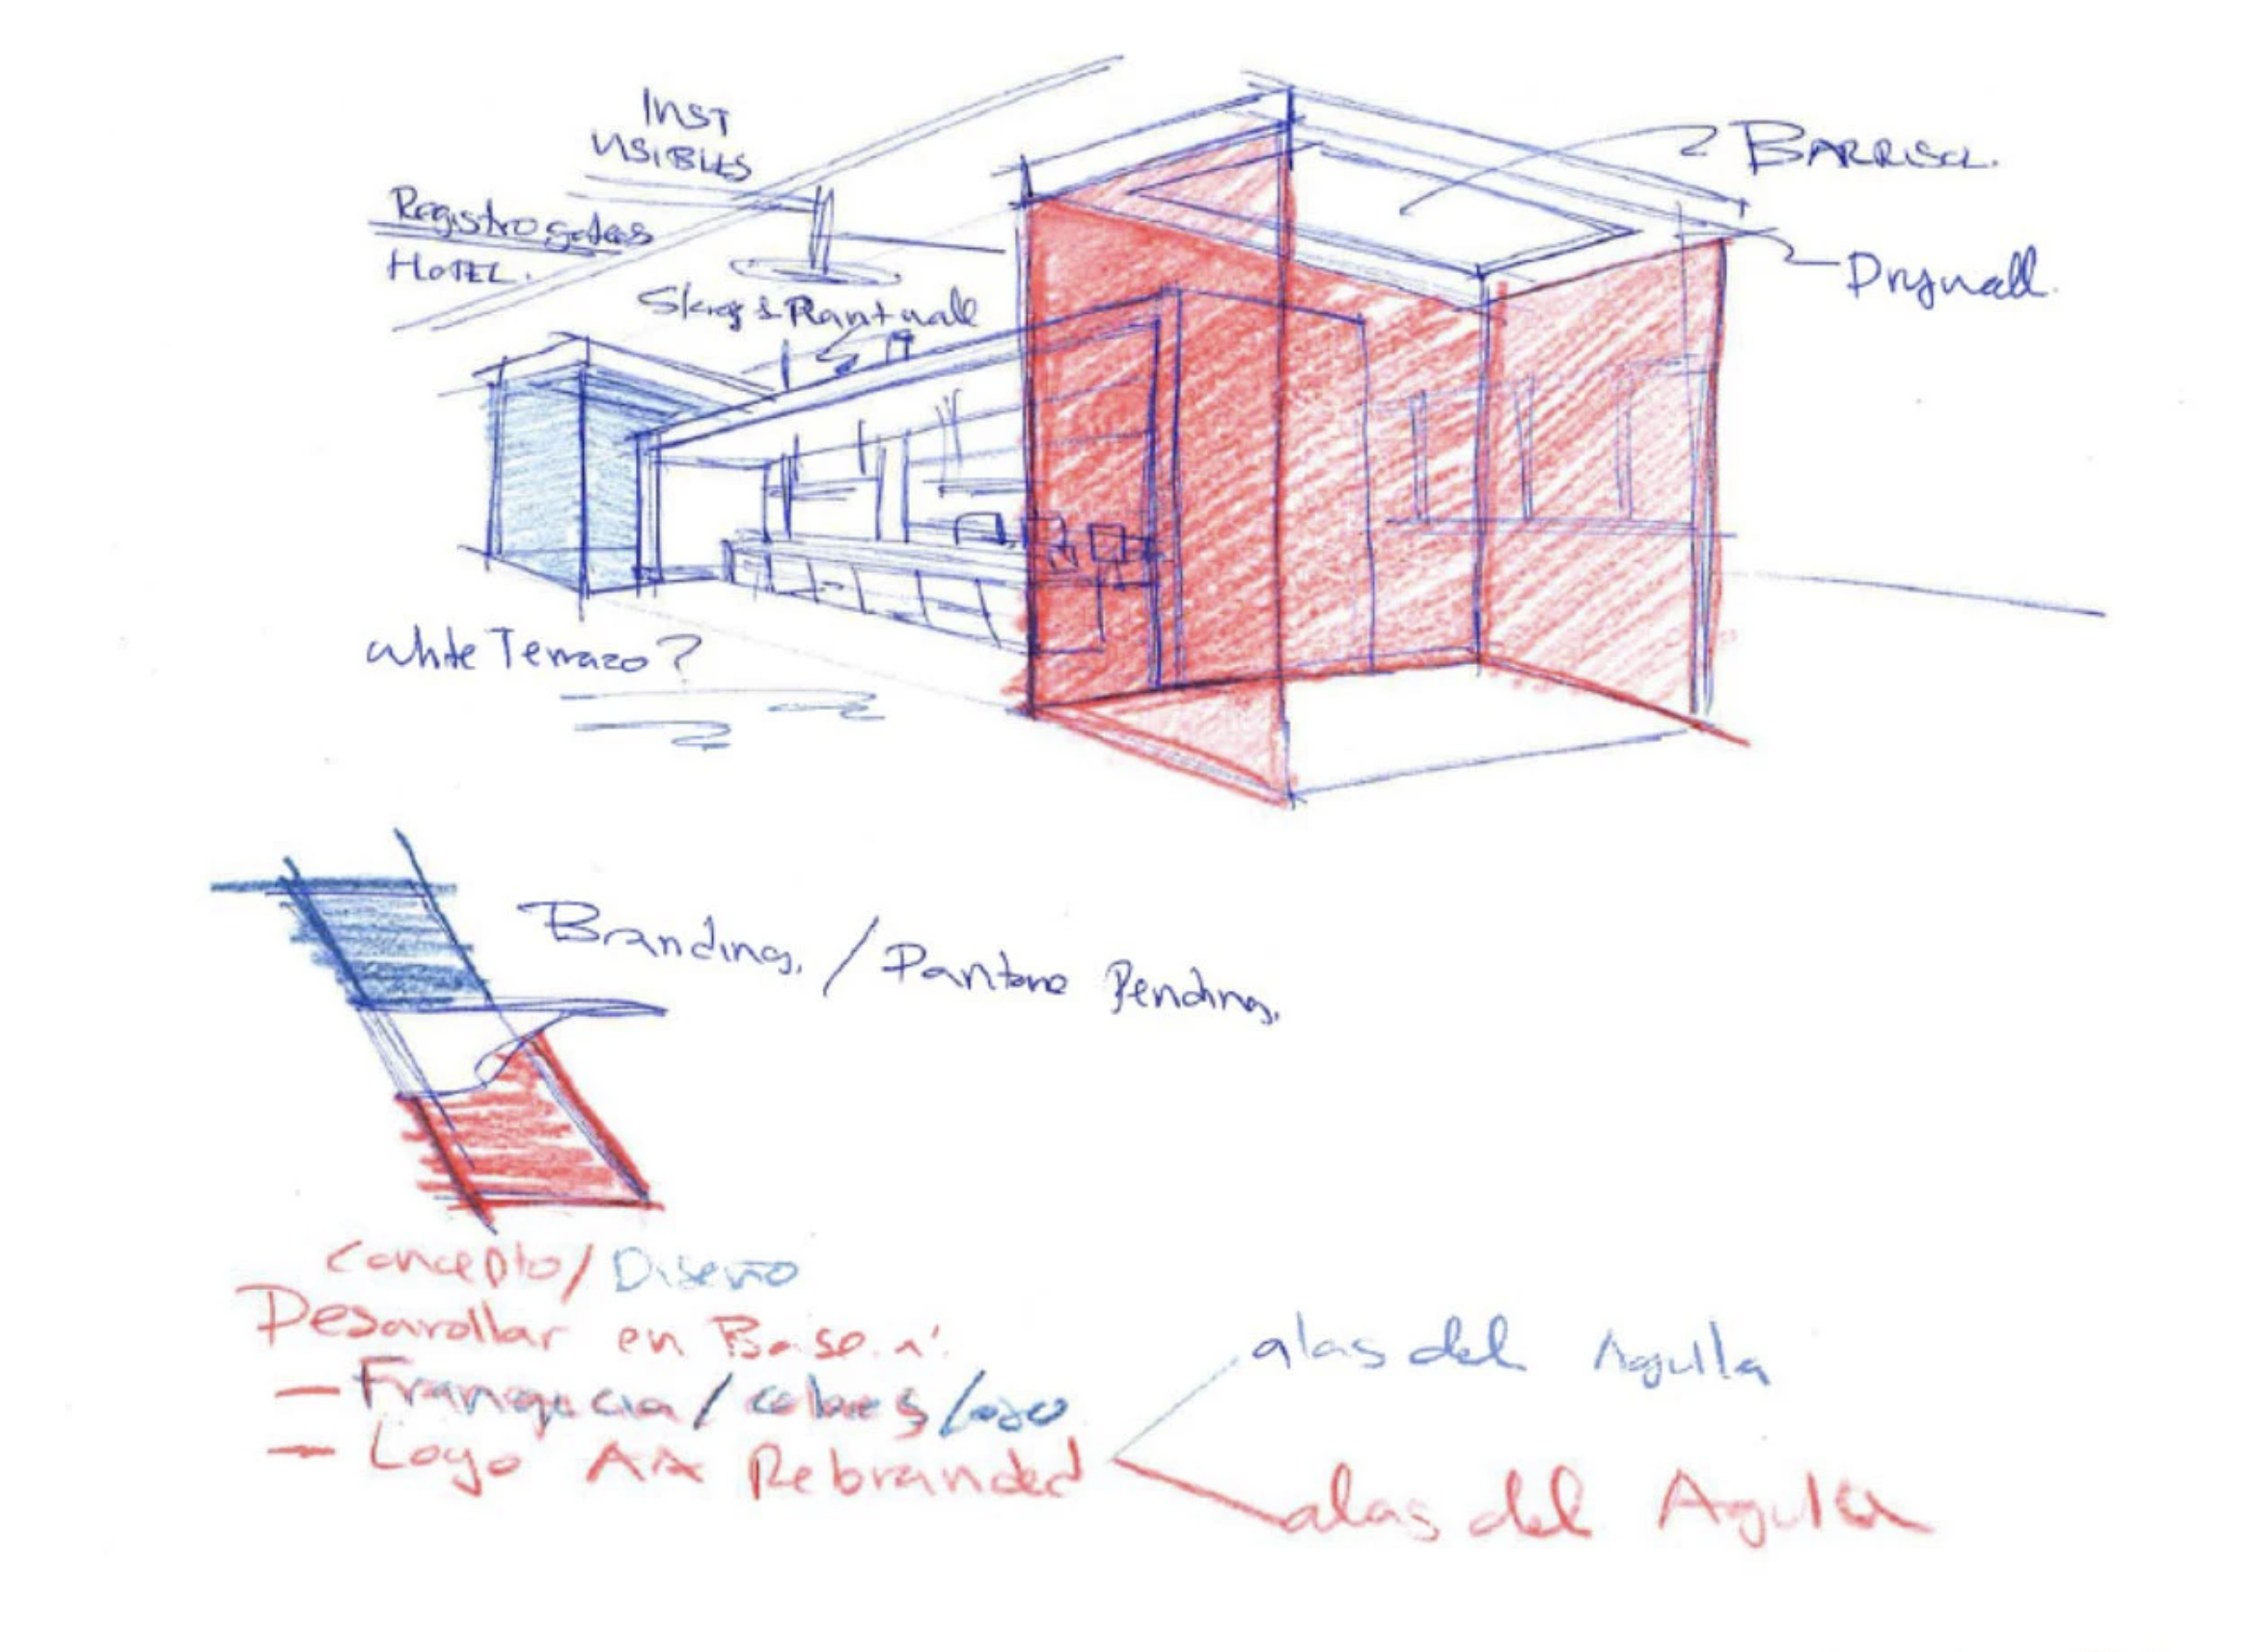 INST
VISIBLES
BARRISOL.
Registro
HOTEL.
Drywall.
& Plant wall
White Terrazo?
Branding. / Pantone Pending.
Concepto/Diseño
Desarollar en Base a:
— Franquicia / colores / Logo
— Logo AA Rebranded
alas del Aguila
alas del Aguila